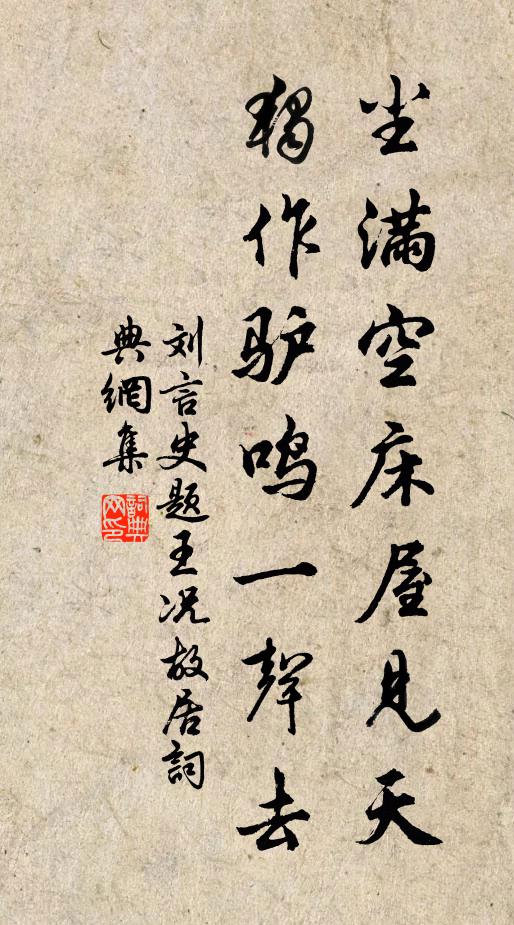 尘满空床屋见天
独作驴鸣一聲去
刘言史题王况故居詞
典網集
詞典
网印